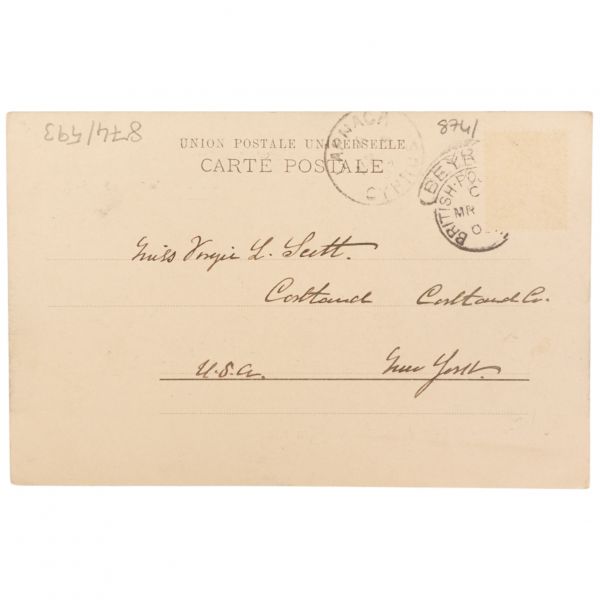 874/593
874/
UNION POSTALE UNIVERSELLE
CARTE POSTALE
ARNACA
CYPRUS
BEYR
BRITISH·PO
MR
Miss Virgie L. Scott.
Cortland Cortland Co.
U.S.A. New York.